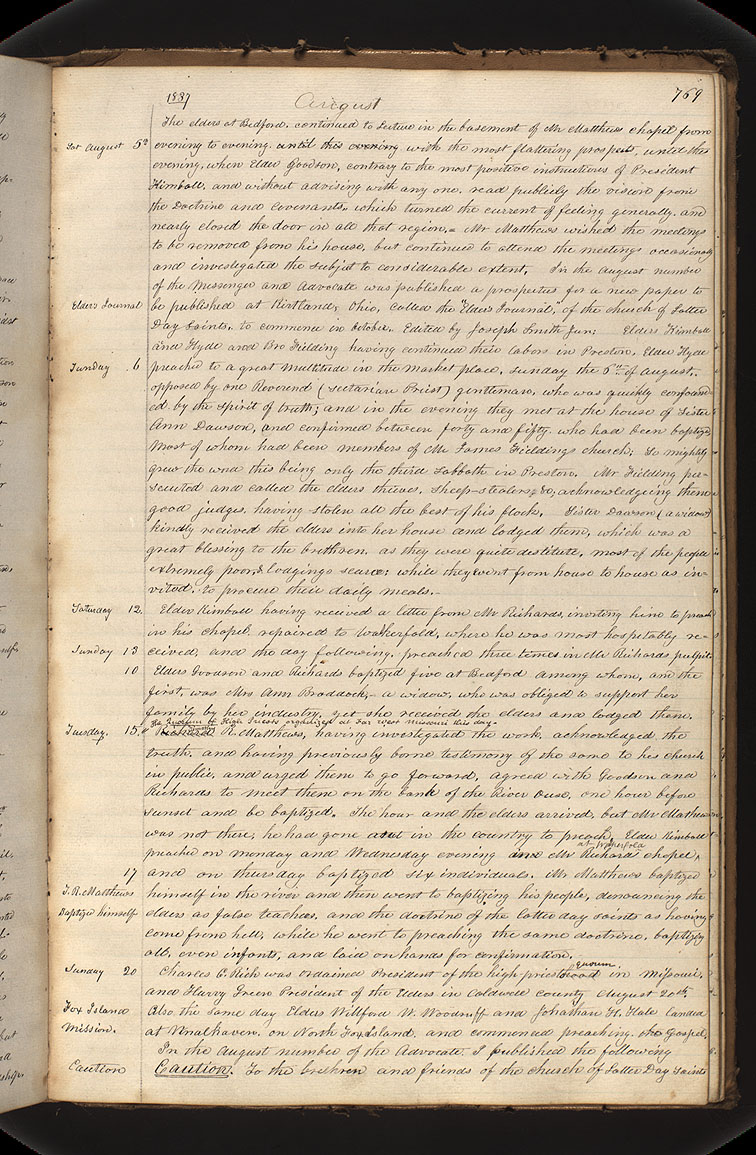 1837 August 769
The elders at Bedford, continued to lecture in the basement of Mr Matthews chapel from
Sat August 5th evening to evening, until this evening with the most flattering prospects, until this
evening, when Elder Goodson, contrary to the most positive instructions of President
Kimball, and without advising with any one, read publicly the vision from
the Doctrine and Covenants, which turned the current of feeling generally, and
nearly closed the door in all that region, = Mr Matthews wished the meetings
to be removed from his house, but continued to attend the meetings occasionally
and investigated the subject to considerable extent, In the August number
of the Messenger and Advocate was published a prospectus for a new paper to
Elders Journal be published at Kirtland, Ohio, called the "Elders Journal," of the church of Latter
Day Saints, to commence in October. Edited by Joseph Smith Jun; Elders Kimball
and Hyde and Bro Fielding having continued their labors in Preston, Elder Hyde
Sunday 6 preached to a great multitude in the market place, Sunday the 6th of August,
opposed by one Reverend (sectarian Priest) gentleman, who was quickly confound-
ed by the spirit of truth; and in the evening they met at the house of Sister
Ann Dawson, and confirmed between forty and fifty, who had been baptized,
Most of whom had been members of Mr James Fieldings church; So mightily
grew the wod this being only the third Sabbath in Preston. Mr Fielding per-
secuted and called the elders thieves, sheep-stealers &c, acknowledgeing them
good judges, having stolen all the best of his flock, Sister Dawson (a widow)
kindly received the elders into her house and lodged them, which was a
great blessing to the brethren, as they were quite destitute, most of the people
extremely poor, & lodgings scarce; while they went from house to house as in-
vited, to procure their daily meals.—
Saturday 12. Elder Kimball having received a letter from Mr Richards, inviting him to preach
in his chapel, repaired to Walkerfold, where he was most hospitably re-
Sunday 13 ceived, and the day following, preached three times in Mr Richards pulpit.
10 Elders Goodson and Richards baptized five at Bedford among whom, and the
first, was Mrs Ann Braddock,- a widow, who was obliged to support her
family by her industry, yet she received the elders and lodged them.
The Quorum of High Priests organized at Far West Missouri this day.
Tuesday. 15. Richards R. Matthews, having investigated the work, acknowledged the
truth, and having previously borne testimony of the same to his church
in public, and urged them to go forward, agreed with Goodson and
Richards to meet them on the bank of the River Ouse, one hour before
sunset and be baptized. The hour and the elders arrived, but Mr Matthews
was not there, he had gone out in the country to preach, Elder Kimball
at Walkerfold
preached on monday and Wednesday evening and Mr Richards chapel,
17 and on thursday baptized six individuals. Mr Matthews baptized
T. R. Matthews himself in the river and then went to baptizing his people, denouncing the
Baptize himself elders as false teachers, and the doctrine of the latter day saints as having
come from hell, while he went to preaching the same doctrine, baptizing
all, even infants, and laid on hands for confirmation.
Quorum
Sunday 20 Charles C. Rich was ordained President of the high priesthood in Missouri,
and Harry Green President of the Elders in Caldwell county August 20th.
Fox Island Also the same day Elders Willford W. Woodruff and Jonathan H. Hale landed
Mission. at Vinalhaven, on North Fox Island, and commenced preaching the Gospel,
In the August number of the Advocate I published the following
Caution Caution. To the brethren and friends of the church of Latter Day Saints